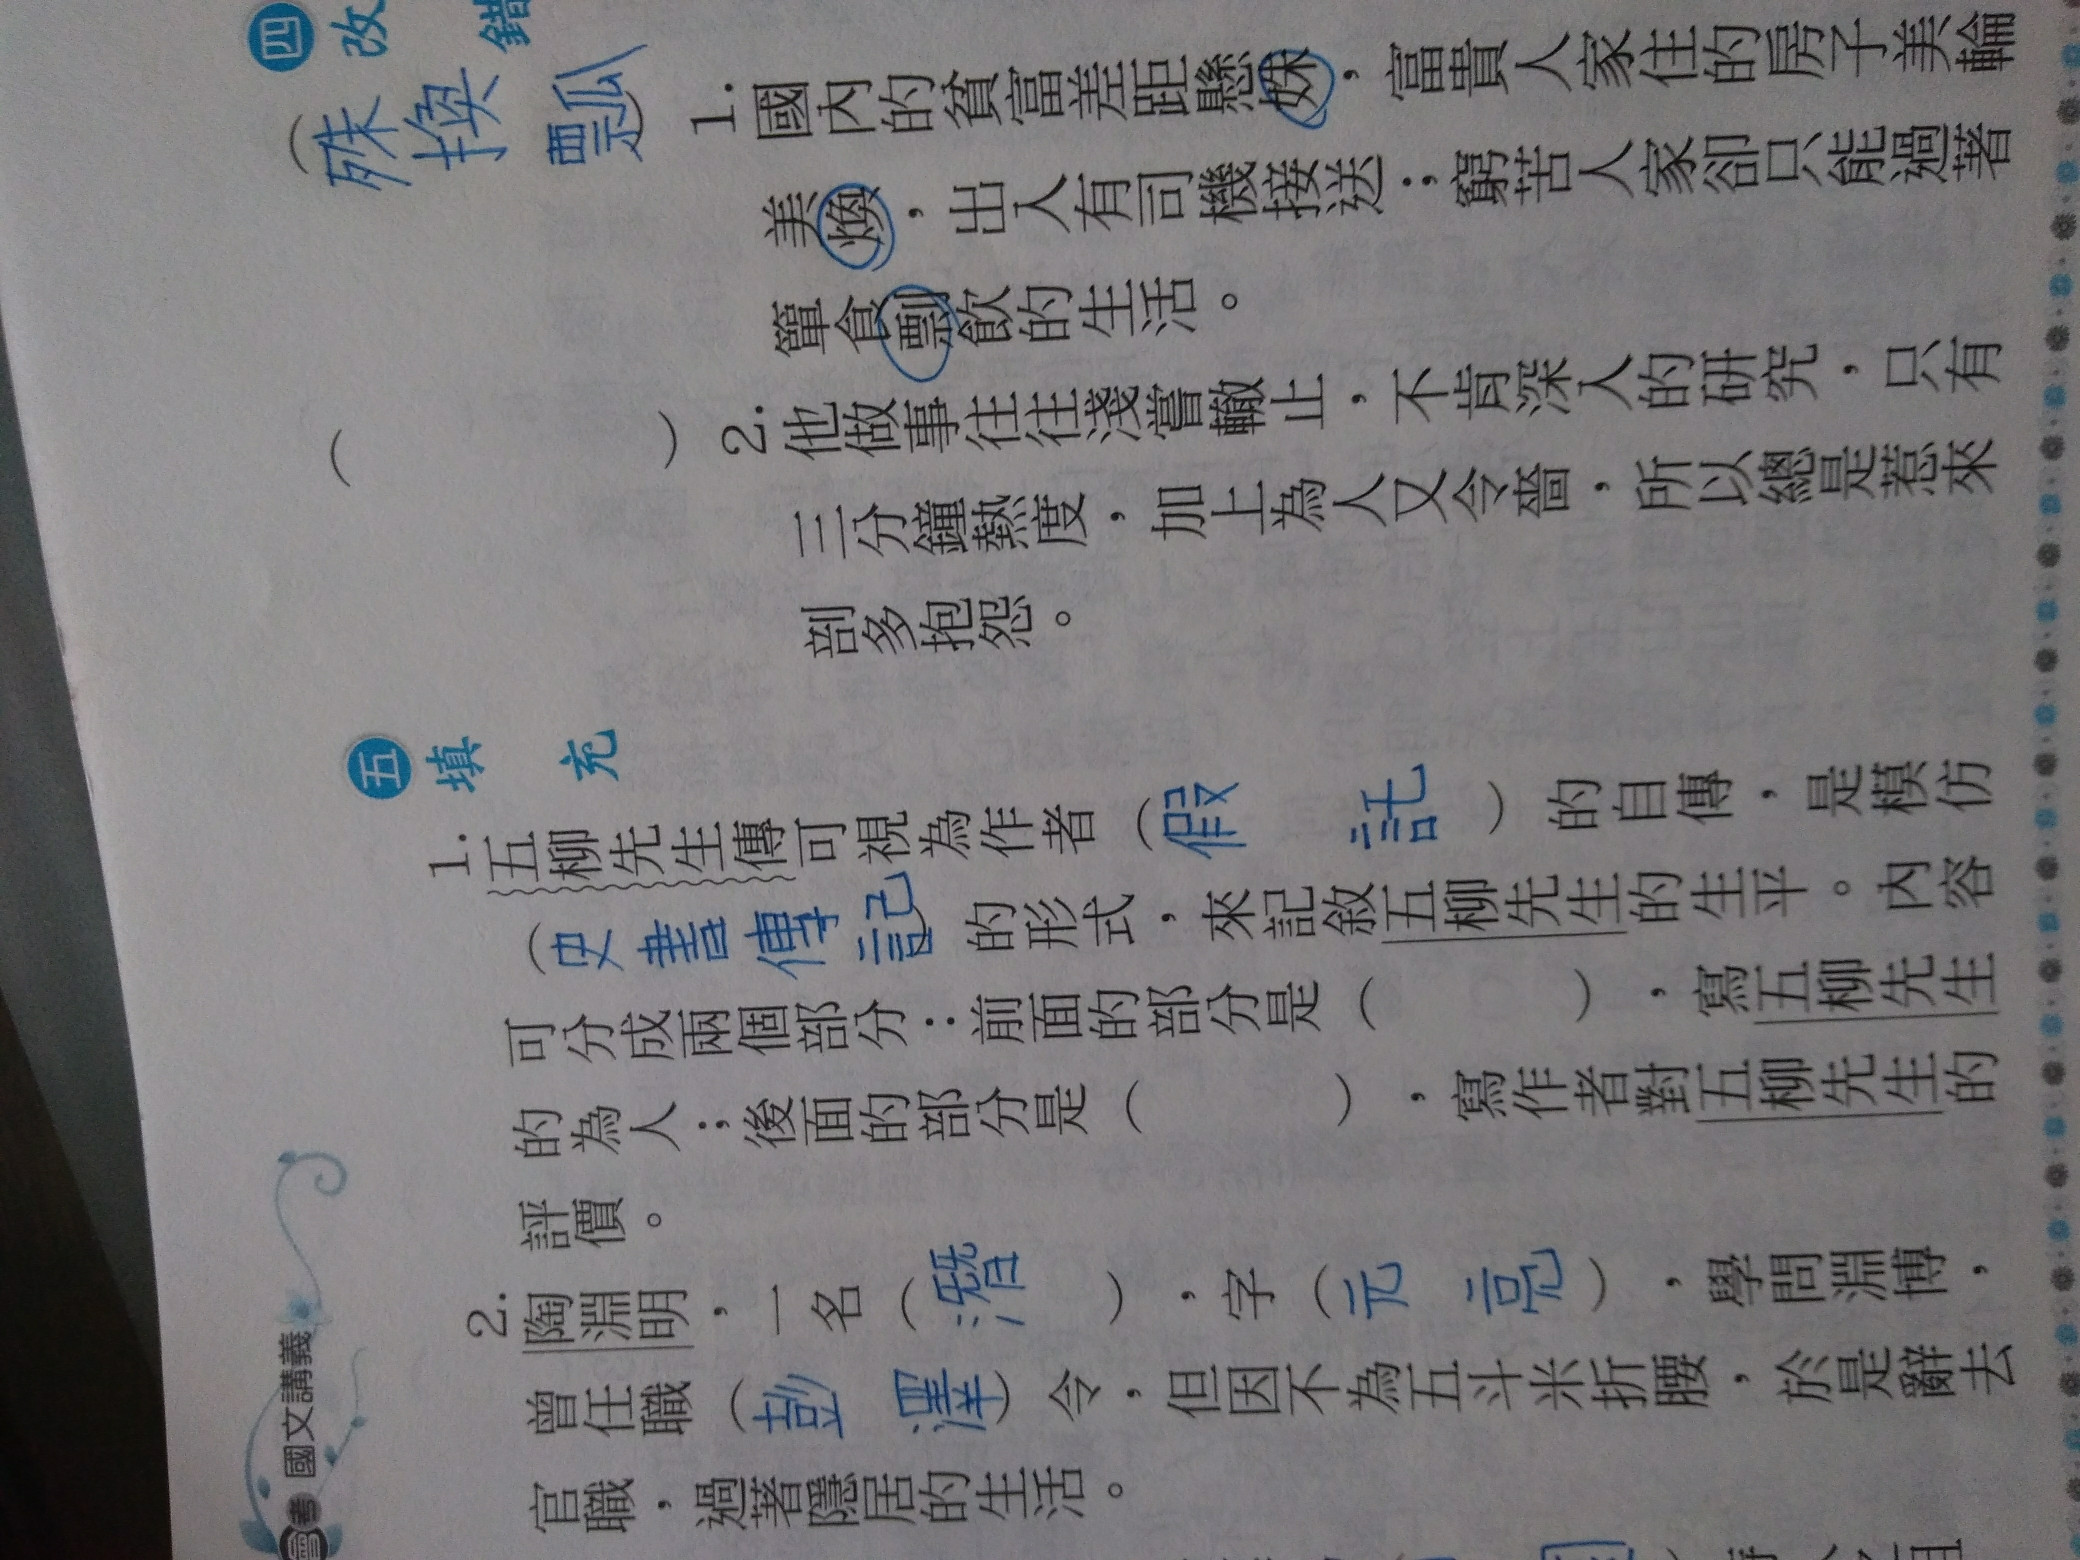 四 改錯
(殊換瓢) 1. 國內的貧富差距懸姝，富貴人家住的房子美輪
美煥，出入有司機接送；窮苦人家卻只能過著
簞食剽飲的生活。
( ) 2. 他做事往往淺嘗轍止，不肯深入的研究，只有
三分鐘熱度，加上為人又令嗇，所以總是惹來
剖多抱怨。
五 填充
1. 五柳先生傳可視為作者(假託)的自傳，是模仿
(史書傳記)的形式，來記敘五柳先生的生平。內容
可分成兩個部分：前面的部分是( )，寫五柳先生
的為人；後面的部分是( )，寫作者對五柳先生的
評價。
2. 陶淵明，一名(潛)，字(元亮)，學問淵博，
曾任職(彭澤)令，但因不為五斗米折腰，於是辭去
官職，過著隱居的生活。
國文講義